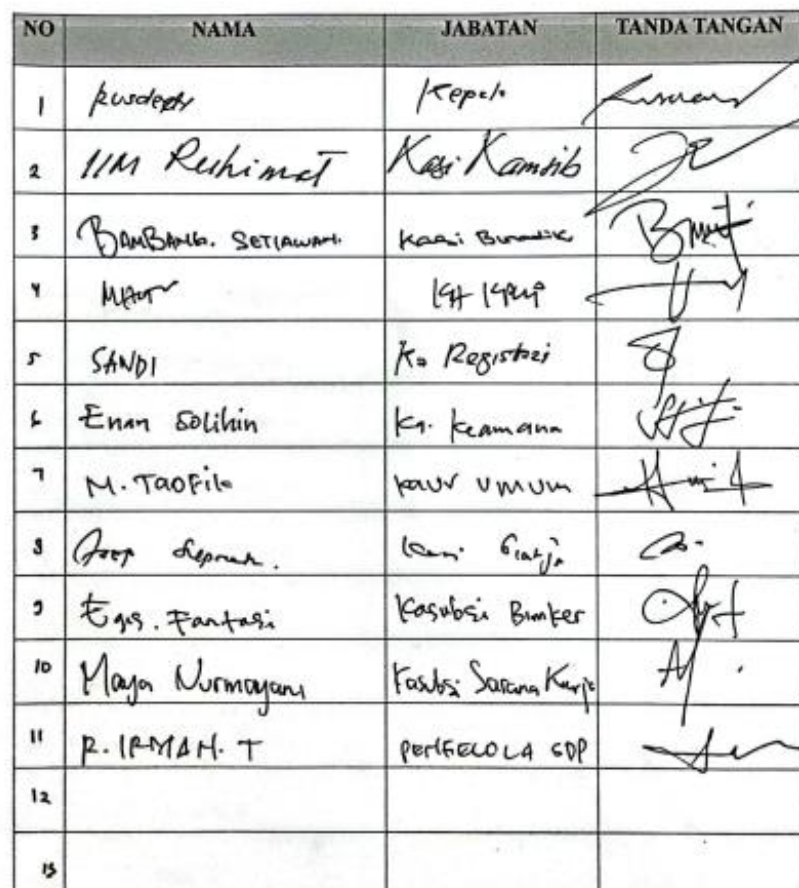 NO NAMA JABATAN TANDA TANGAN
1 Kepala
2 IIM Ruhimat Kasi Kamtib
3 BAMBANG. SETIAWAN. Kasi
4
5 SANDI Ka Registrasi
6 Enan Solihin Ka. Keamana
7 M. TAOFIK KAUR UMUM
8 Kasi Giatja
9 Egis. Fantasi Kasubsi Bimker
10 Maya Nurmayani Kasubsi Sarana Kerja
11 R. IRMAN. T PENGELOLA SDP
12
13